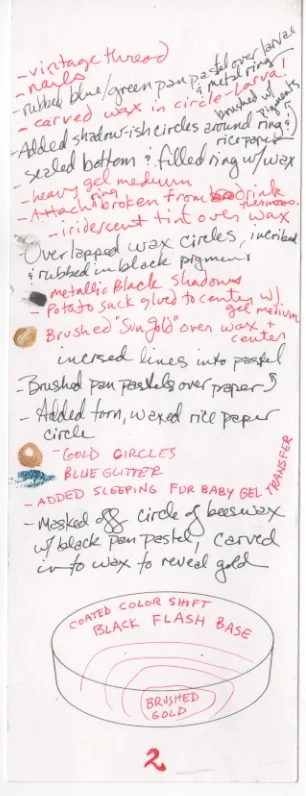 - vintage thread
- nails
- rubbed blue/green pan pastel over larvae & metal ring
- carved wax in circle-larva!
- Added shadow-ish circles around ring!
brushed w/ pigments
rice paper
- sealed bottom & filled ring w/ wax
- heavy gel medium
- Attach ring broken from drink thermos.
- iridescent tint over wax
- Overlapped wax circles, incribed
& rubbed in black pigment
metallic Black Shadows
- Potato sack glued to center w/ gel medium
Brushed "Sun gold" over wax + center
incised lines into pastel
- Brushed pan pastels over paper
- Added torn, waxed rice paper
circle
- GOLD CIRCLES
BLUE GLITTER
- ADDED SLEEPING FUR BABY GEL TRANSFER
- Masked off circle of beeswax
w/ black pan pastel, carved
into wax to reveal gold
COATED COLOR SHIFT
BLACK FLASH BASE
BRUSHED
GOLD
2